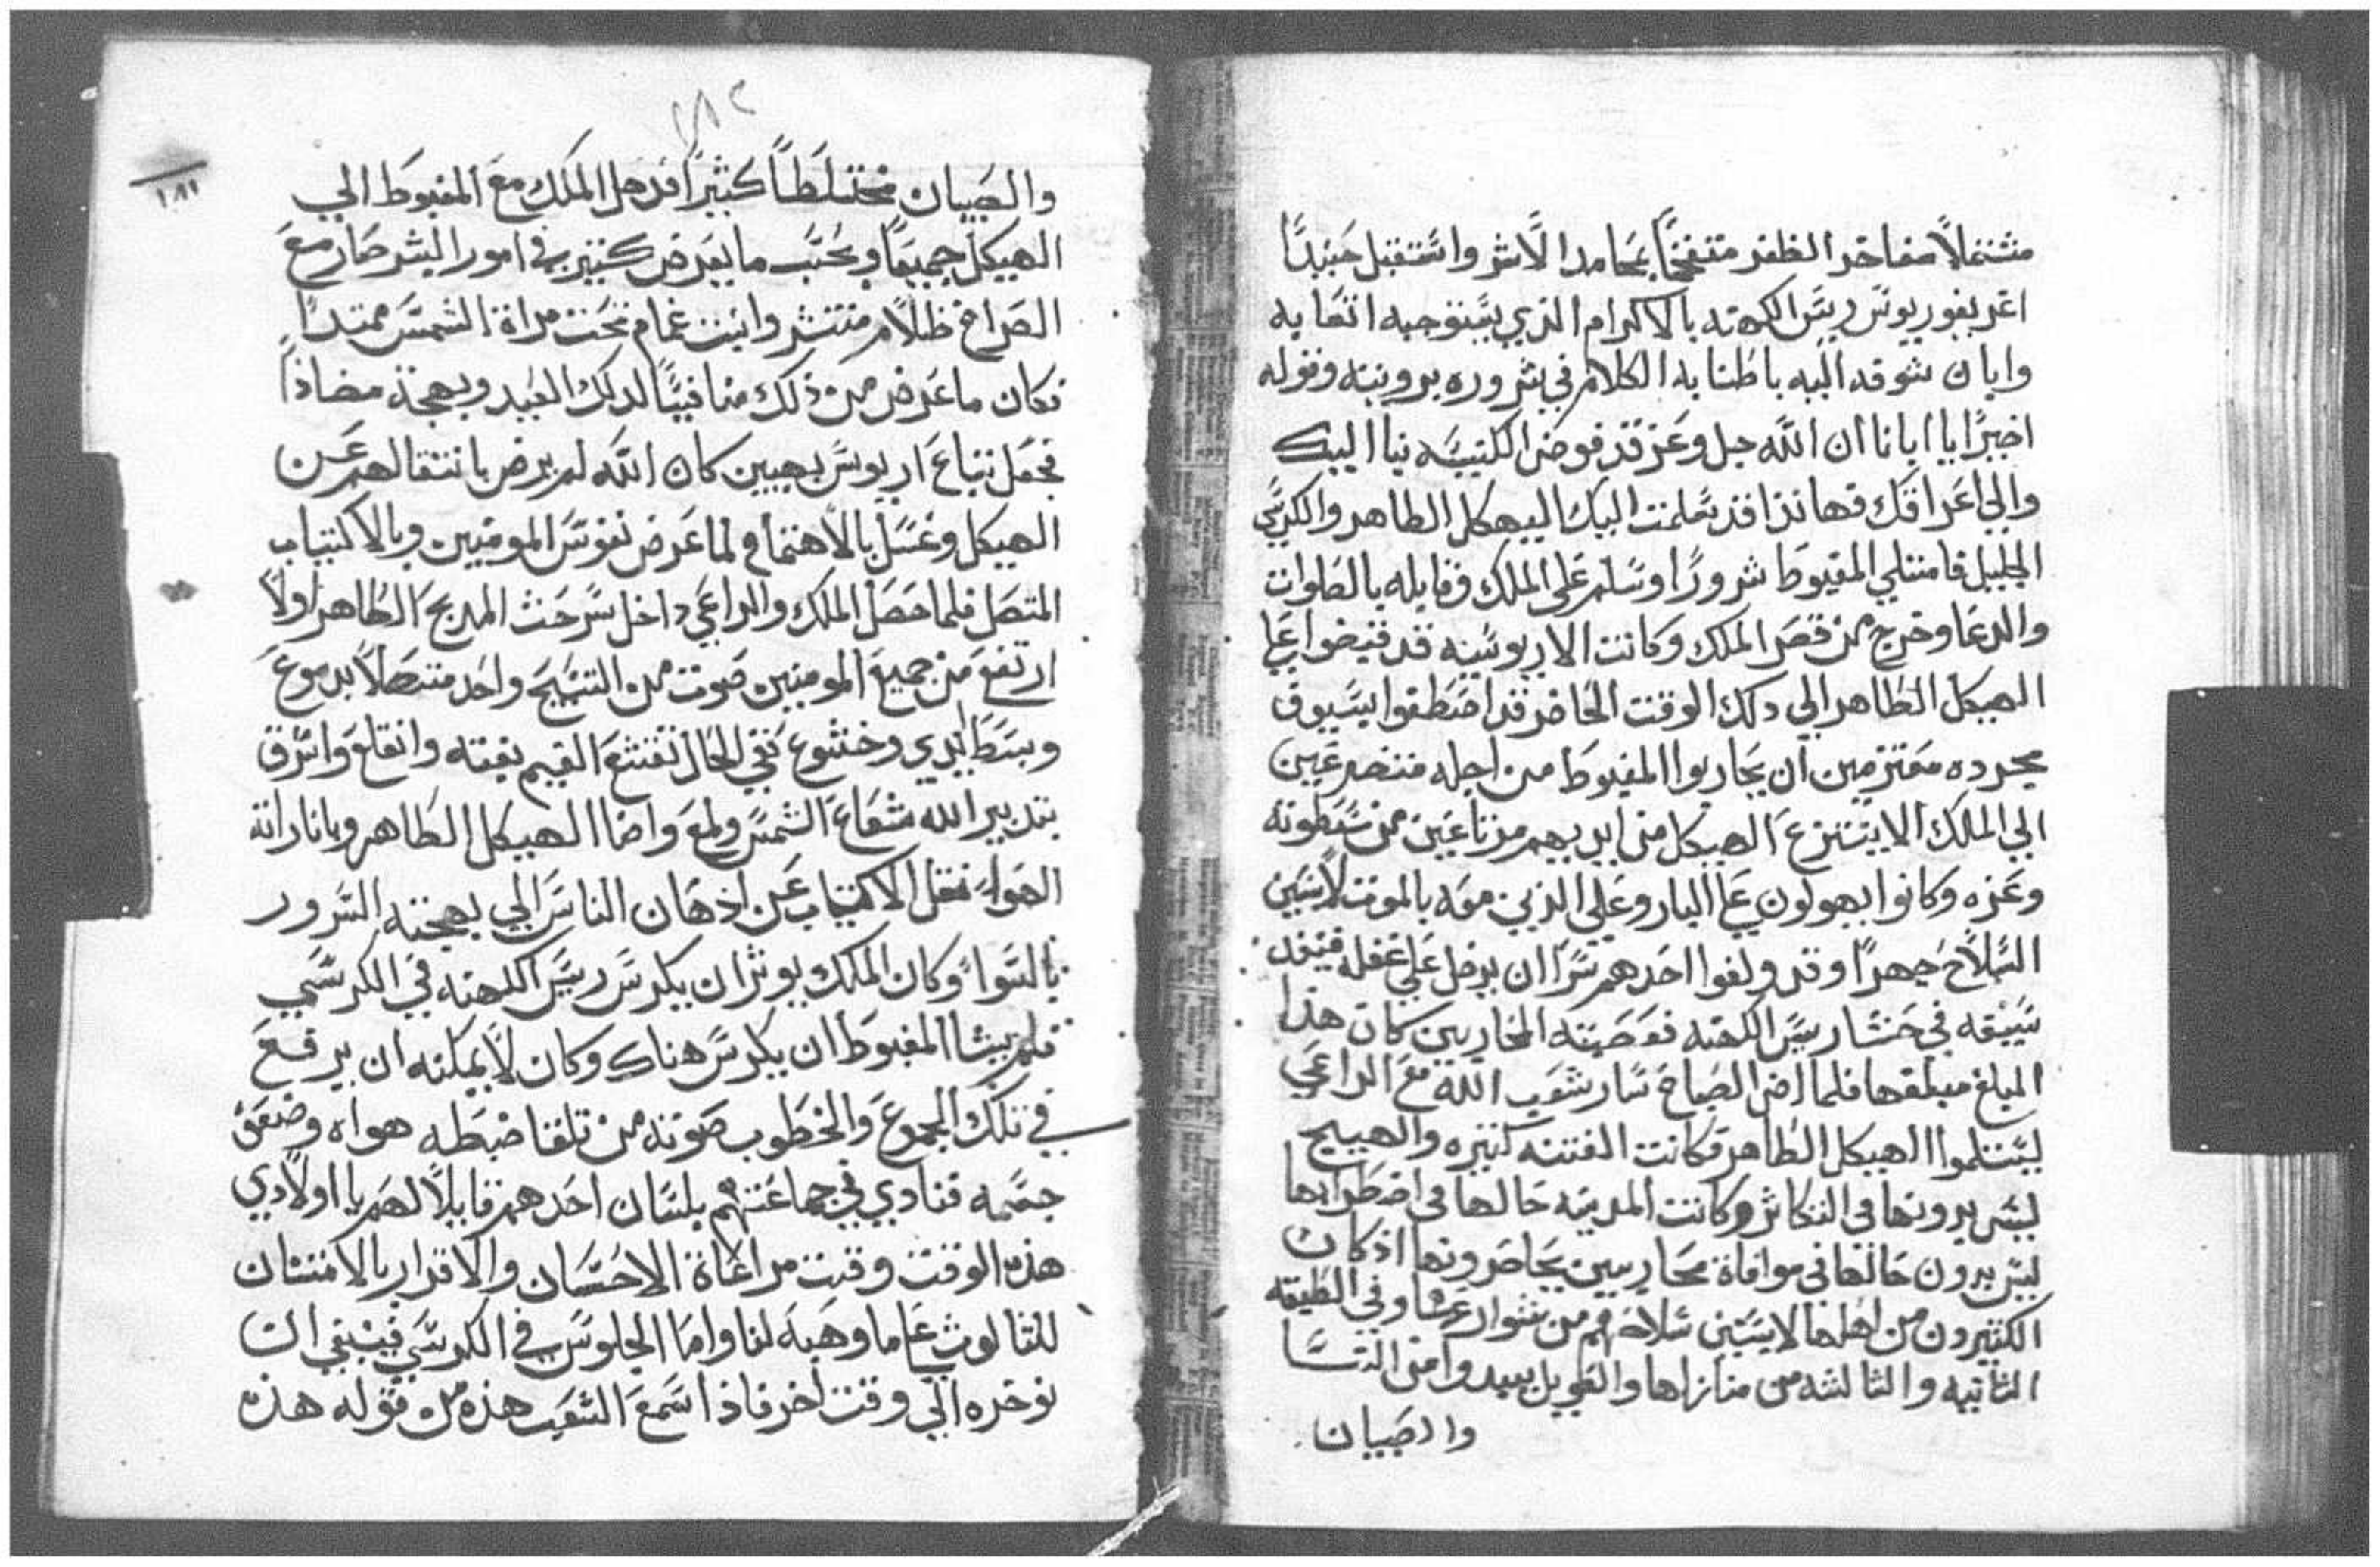 مشتملاً مفاخر الظفر متفخماً بمحامد الاثر واستقبل حينيذاً
اغريغوريوس ريس الكهنه بالاكرام الذي يستوجبه اتعابه
وابان شوقه اليه باطنابه الكلام في سروره برويته وقوله
اخيرًا يا ابانا ان الله جل وعز قد فوض الكنيسه بنا اليك
والي اعراقك فهانذا قد سلمت اليك الهيكل الطاهر والكرسي
الجليل فامتلي المغبوط سرورًا وسلم علي الملك وقابله بالصلوات
والدعا وخرج من قصر الملك وكانت الاريوسيه قد قبضوا علي
الهيكل الطاهر الي دلك الوقت الحاضر قد اصطفوا بسيوف
مجرده معتزمين ان يحاربوا المغبوط من اجله متضرعين
الي الملك الا ينتزع الهيكل من ايديهم مرتاعين من سطوته
وعزه وكانوا يهولون علي البار وعلي الذين معه بالموت لابسين
السلاح جهرًا وقد ولفوا احدهم سرًا ان يدخل علي غفله فيغمد
سيفه في حشا ريس الكهنه فوصيته المحاربين كان هذا
المبلغ مبلغها فلما اضا الصباح سار شعب الله مع الراعي
ليستلموا الهيكل الطاهر فكانت الفتنه كثيره والهييج
ليس بدونها في التكاثر وكانت المدينه حالها في اضطرابها
ليس بدون حالها في موافاة محاربين يحاصرونها اذ كان
الكثيرون من اهلها لابسين سلاح وفي الطبقه
الثانيه والثالثه من منازلها والعويل يبيدوا من النسا
والصبيان
١٨٢
١٨٩
والصبيان مختلطاً كثيرًا فدخل الملك مع المغبوط الي
الهيكل جميعًا وبحسب ما يعرض كثير في امور البشر صار مع
الصراخ ظلام منتشر وانبث غمام تحت مراة الشمس ممتدًا
فكان ما عرض من ذلك منافيًا لدلك العيد وبهجة مضاذاً
فجعل تباع اريوس بهيين كان الله لم يرض بانتقالهم عن
الهيكل وغسل بالاهتمام لما عرض نفوس المومنين وبالاكتياب
المتصل فلما حصل الملك والراعي داخل سرحت المدبح الطاهر اولاً
ارتفع من جميع المومنين صوت من التسبيح واحد متصلاً بدموع
وبسط ايدي وخشوع ففي الحال تقشع الغيم بغته وانقلع واشرق
بتدبير الله شعاع الشمس ولمع واضا الهيكل الطاهر وبانارته
الهواء نقل الاكتياب عن اذهان الناس الي بهجته السرور
بالسوا وكان الملك يوثر ان يكرس ريس الكهنه في الكرسي
فلم يشا المغبوط ان يكرس هناك وكان لا يمكنه ان يرفع
في تلك الجموع والخطوب صوته من تلقا ضبطه هواه وضعف
جسمه فنادي في جماعتهم بلسان احدهم قايلاً لهم يا اولادي
هذه الوقت وقت مراعاة الاحسان والاقرار بالامتنان
للثالوث علي ما وهبه لنا واما الجلوس في الكرسي فينبغي ان
نوخره الي وقت اخر فاذ سمع الشعب هذه من قوله هذه